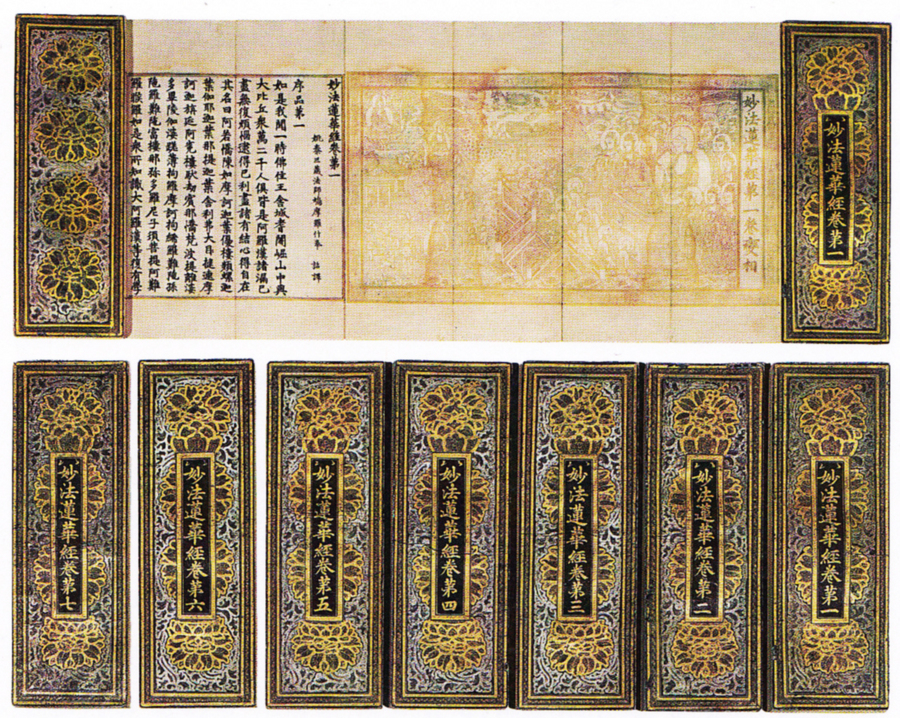 妙法蓮華經卷第一
妙法蓮華經第一卷變相
妙法蓮華經卷第一
姚秦三藏法師鳩摩羅什奉 詔譯
序品第一
如是我聞一時佛住王舍城耆闍崛山中與
大比丘衆萬二千人俱皆是阿羅漢諸漏已
盡無復煩惱逮得己利盡諸有結心得自在
其名曰阿若憍陳如摩訶迦葉優樓頻螺迦
葉伽耶迦葉那提迦葉舍利弗大目揵連摩
訶迦旃延阿㝹樓馱劫賓那憍梵波提離婆
多畢陵伽婆蹉薄拘羅摩訶拘絺羅難陁孫
陁羅難陁富樓那弥多羅尼子須菩提阿難
羅睺羅如是衆所知識大阿羅漢等復有學
妙法蓮華經卷第一
妙法蓮華經卷第二
妙法蓮華經卷第三
妙法蓮華經卷第四
妙法蓮華經卷第五
妙法蓮華經卷第六
妙法蓮華經卷第七